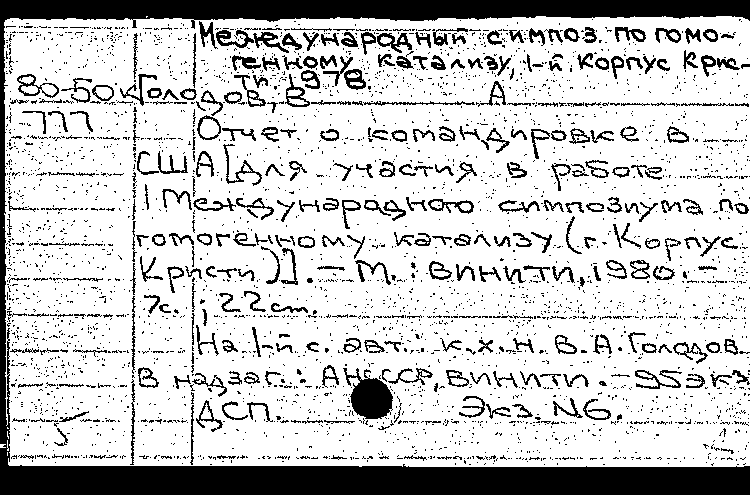 Международный симпоз. по гомо-
генному катализу, 1-й, Корпус Крис-
ти. 1978.
80-50к Голодов, В А
777 Отчет о командировке в
США [для участия в работе
I Международного симпозиума по
гомогенному катализу (г. Корпус
Кристи)]. - М. : ВИНИТИ, 1980. -
7с. ; 22 cm.
На 1-й с. авт. : к.х.н. В.А. Голодов
В надзаг. : АН СССР, ВИНИТИ. - 95 экз
ДСП. Экз. N6.